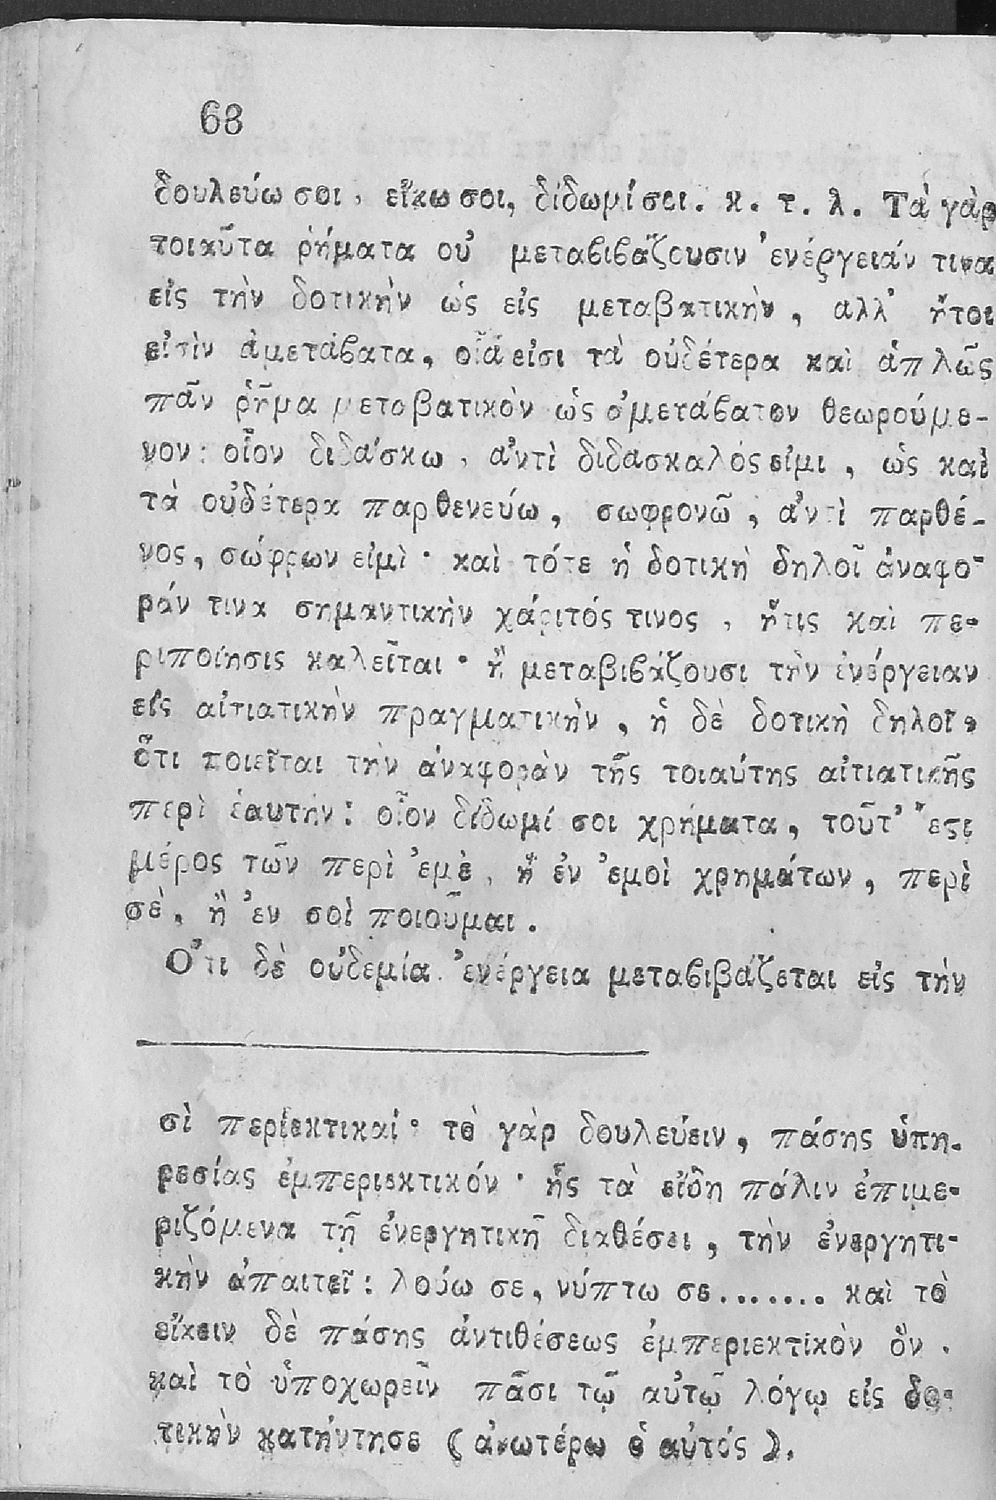 68
δουλεύω σοι, εἴκω σοι, δίδωμί σοι. κ. τ. λ. Τὰ γὰρ
τοιαῦτα ῥήματα οὐ μεταβιβάζουσιν ἐνέργειάν τινα
εἰς τὴν δοτικὴν ὡς εἰς μεταβατικὴν, αλλ' ἤτοι
εἰσὶν ἀμετάβατα, οἷά εἰσι τὰ οὐδέτερα καὶ ἁπλῶς
πᾶν ῥῆμα μεταβατικὸν ὡς ἀμετάβατον θεωρούμε-
νον: οἷον διδάσκω, ἀντὶ διδάσκαλός εἰμι, ὡς καὶ
τὰ οὐδέτερα παρθενεύω, σωφρονῶ, ἀντὶ παρθέ-
νος, σώφρων εἰμὶ· καὶ τότε ἡ δοτικὴ δηλοῖ ἀναφο-
ράν τινα σημαντικὴν χάριτός τινος, ἥτις καὶ πε-
ριποίησις καλεῖται· ἢ μεταβιβάζουσι τὴν ἐνέργειαν
εἰς αἰτιατικὴν πραγματικὴν, ἡ δὲ δοτικὴ δηλοῖ,
ὅτι ποιεῖται τὴν ἀναφορὰν τῆς τοιαύτης αἰτιατικῆς
περὶ ἑαυτήν: οἷον δίδωμί σοι χρήματα, τοῦτ' ἔϛι
μέρος τῶν περὶ ἐμὲ, ἢ ἐν ἐμοὶ χρημάτων, περὶ
σὲ, ἢ ἐν σοὶ ποιοῦμαι.
Ὅτι δὲ οὐδεμία ἐνέργεια μεταβιβάζεται εἰς τὴν
σὶ περιεκτικαί· τὸ γὰρ δουλεύειν, πάσης ὑπη-
ρεσίας ἐμπεριεκτικόν· ἧς τὰ εἴδη πάλιν ἐπιμε-
ριζόμενα τῇ ἐνεργητικῇ διαθέσει, τὴν ἐνεργητι-
κὴν ἀπαιτεῖ: λούω σε, νύπτω σε........ καὶ τὸ
εἴκειν δὲ πάσης ἀντιθέσεως ἐμπεριεκτικὸν ὂν.
καὶ τὸ ὑποχωρεῖν πᾶσι τῷ αὐτῷ λόγῳ εἰς δο-
τικὴν κατήντησε (ἀνωτέρω ὁ αὐτός).